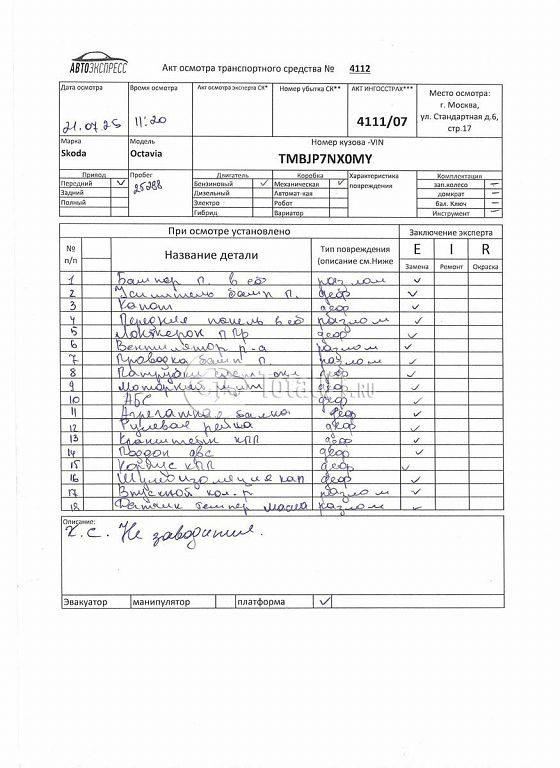 АВТОЭКСПРЕСС
Акт осмотра транспортного средства № 4112
Дата осмотра Время осмотра Акт осмотра эксперта СК* Номер убытка СК** АКТ ИНГОССТРАХ*** Место осмотра:
г. Москва,
ул. Стандартная д.6,
стр.17
21.07.25 11:20 4111/07
Марка Модель Номер кузова -VIN
Skoda Octavia TMBJP7NX0MY
Привод Пробег Двигатель Коробка Характеристика повреждения Комплектация
Передний ✓ 25288 Бензиновый ✓ Механическая ✓ зап.колесо –
Задний Дизельный Автомат-кая домкрат –
Полный Электро Робот бал. Ключ –
Гибрид Вариатор Инструмент –
При осмотре установлено Заключение эксперта
№ п/п Название детали Тип повреждения (описание см.Ниже E I R
Замена Ремонт Окраска
1 Бампер п. в сб разлом ✓
2 Усилитель бамп п. деф ✓
3 Капот деф ✓
4 Передняя панель в сб разлом ✓
5 Лонжерон ППр деф ✓
6 Вентилятор р-а разлом ✓
7 Проводка бамп п. разлом ✓
8 Патрубки деф ✓
9 Моторный щит деф ✓
10 АБС деф ✓
11 Агрегатная балка деф ✓
12 Рулевая рейка деф ✓
13 Кронштейн КПП деф ✓
14 Поддон двс деф ✓
15 Корпус КПП деф ✓
16 Шумоизоляция кап деф ✓
17 Впускной кол-р разлом ✓
18 Датчик темпер масла разлом ✓
Описание:
Х.С. Не заводится.
Эвакуатор манипулятор платформа ✓